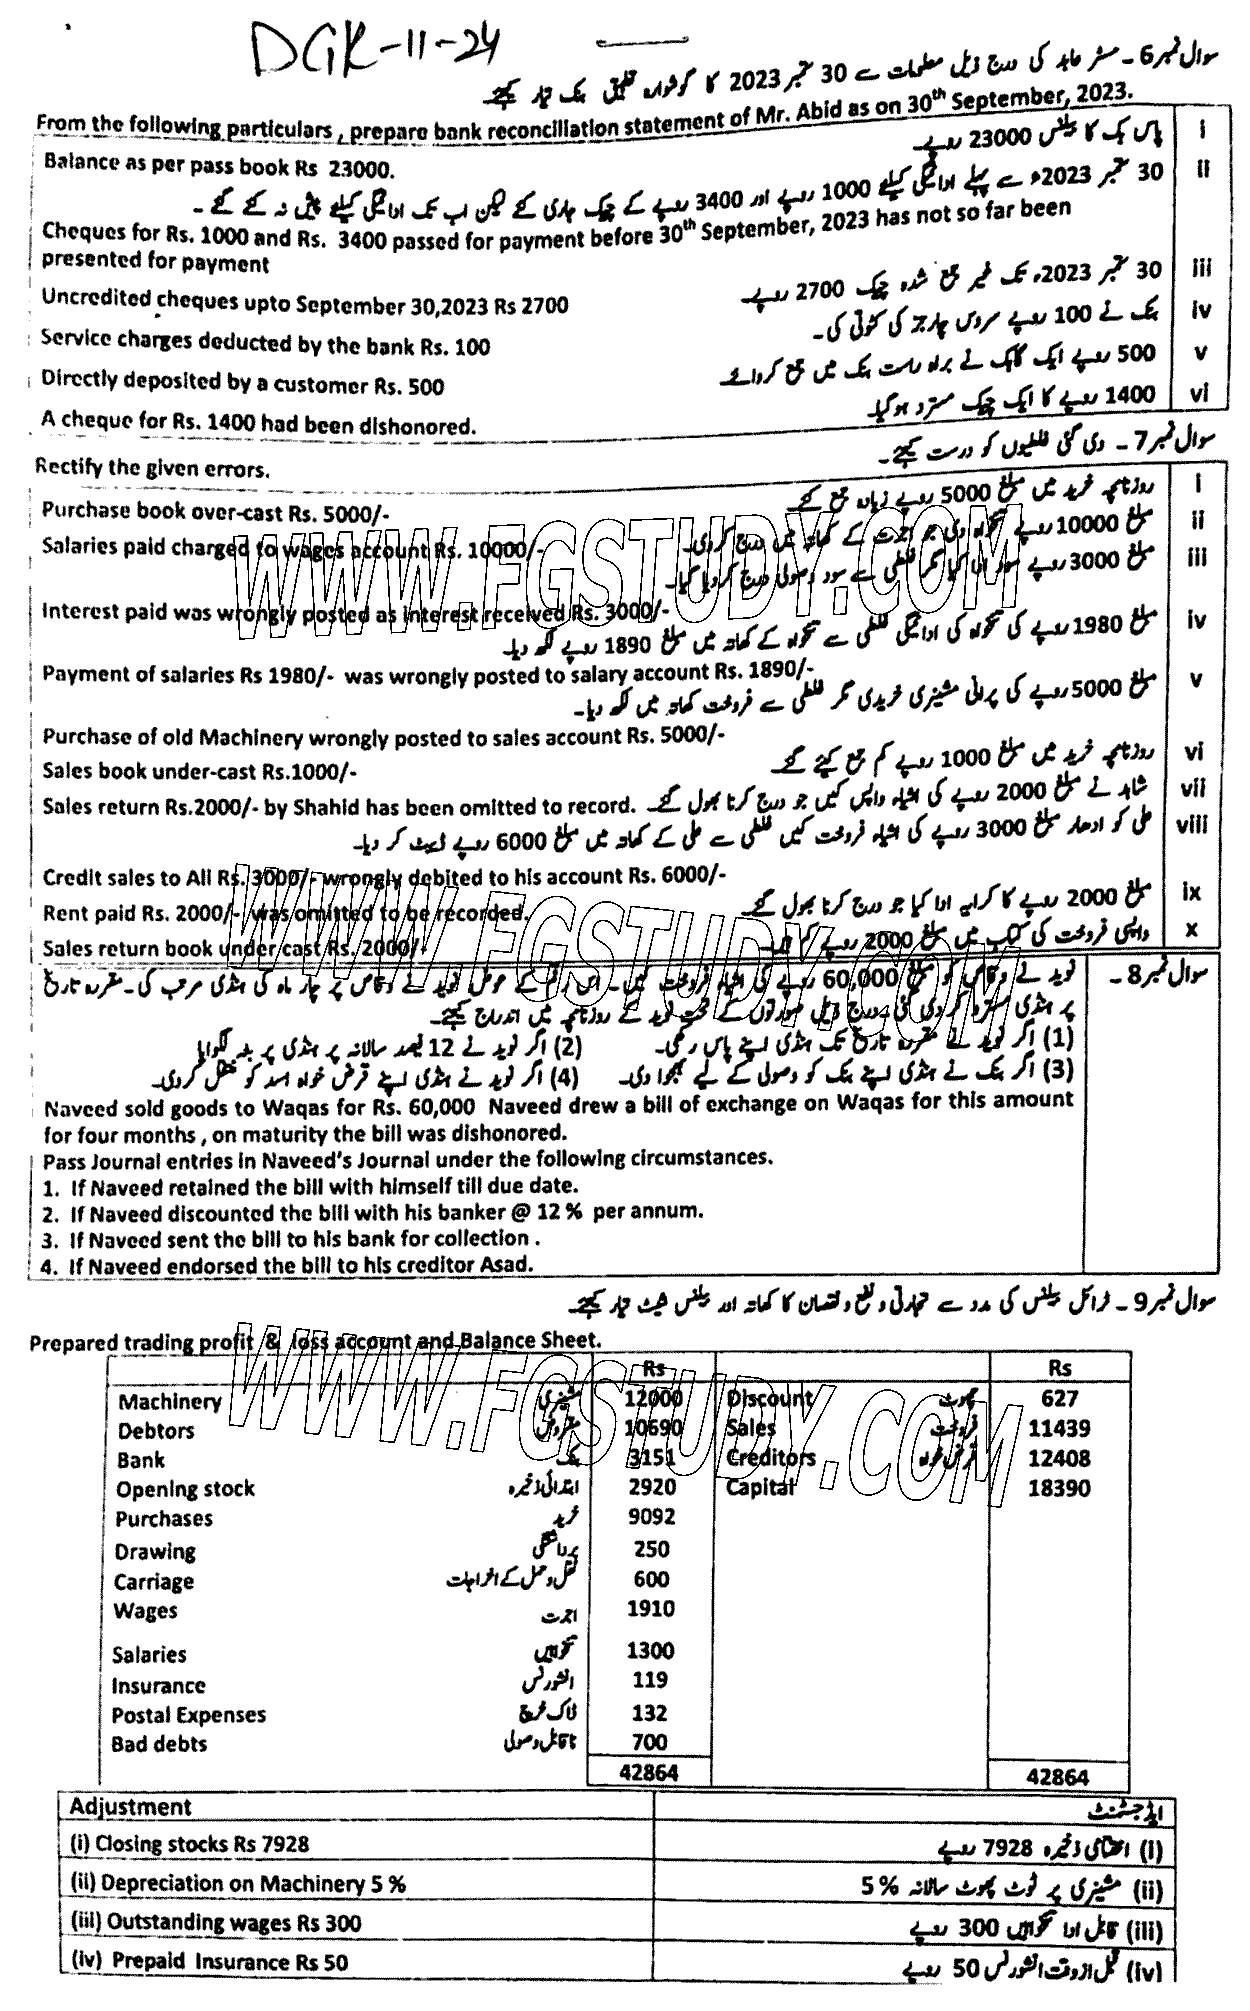 DGK-11-24
سوال نمبر6۔ مسٹر عابد کی درج ذیل معلومات سے 30 ستمبر 2023 کا گوشوارہ تطبیق بنک تیار کیجئے
From the following particulars , prepare bank reconciliation statement of Mr. Abid as on 30th September, 2023.
پاس بک کا بیلنس 23000 روپے i
Balance as per pass book Rs 23000.
30 ستمبر 2023ء سے پہلے ادائیگی کیلئے 1000 روپے اور 3400 روپے کے چیک جاری کئے لیکن اب تک ادائیگی کیلئے پیش نہ کئے گئے۔ ii
Cheques for Rs. 1000 and Rs. 3400 passed for payment before 30th September, 2023 has not so far been
presented for payment
30 ستمبر 2023ء تک غیر جمع شدہ چیک 2700 روپے iii
Uncredited cheques upto September 30,2023 Rs 2700
بنک نے 100 روپے سروس چارجز کی کٹوتی کی۔ iv
Service charges deducted by the bank Rs. 100
500 روپے ایک گاہک نے براہ راست بنک میں جمع کروائے v
Directly deposited by a customer Rs. 500
1400 روپے کا ایک چیک مسترد ہوگیا۔ vi
A cheque for Rs. 1400 had been dishonored.
سوال نمبر7۔ دی گئی غلطیوں کو درست کیجئے۔
Rectify the given errors.
روزنامچہ خرید میں مبلغ 5000 روپے زیادہ جمع کئے i
Purchase book over-cast Rs. 5000/-
مبلغ 10000 روپے تنخواہ دی جو اجرت کے کھاتہ میں درج کردی۔ ii
Salaries paid charged to wages account Rs. 10000/-
مبلغ 3000 روپے سود ادا کیا مگر غلطی سے سود وصولی درج کردیا گیا۔ iii
Interest paid was wrongly posted as interest received Rs. 3000/-
مبلغ 1980 روپے کی تنخواہ کی ادائیگی غلطی سے تنخواہ کے کھاتہ میں مبلغ 1890 روپے لکھ دیا۔ iv
Payment of salaries Rs 1980/- was wrongly posted to salary account Rs. 1890/-
مبلغ 5000 روپے کی پرانی مشینری خریدی مگر غلطی سے فروخت کھاتہ میں لکھ دیا۔ v
Purchase of old Machinery wrongly posted to sales account Rs. 5000/-
روزنامچہ خرید میں مبلغ 1000 روپے کم جمع کئے گئے vi
Sales book under-cast Rs.1000/-
شاہد نے مبلغ 2000 روپے کی اشیاء واپس کیں جو درج کرنا بھول گئے vii
Sales return Rs.2000/- by Shahid has been omitted to record.
علی کو ادھار مبلغ 3000 روپے کی اشیاء فروخت کیں غلطی سے علی کے کھاتہ میں مبلغ 6000 روپے ڈیبٹ کر دیا۔ viii
Credit sales to All Rs. 3000/- wrongly debited to his account Rs. 6000/-
مبلغ 2000 روپے کا کرایہ ادا کیا جو درج کرنا بھول گئے ix
Rent paid Rs. 2000/- was omitted to be recorded.
واپسی فروخت کی کتاب میں مبلغ 2000 روپے کم ہیں۔ x
Sales return book under cast Rs. 2000/-
سوال نمبر8۔ نوید نے وقاص کو مبلغ 60,000 روپے کی اشیاء فروخت کیں۔ اس رقم کے عوض نوید نے وقاص پر چار ماہ کی ہنڈی مرتب کی۔ مقررہ تاریخ
پر ہنڈی مسترد کر دی گئی۔ درج ذیل صورتوں کے تحت نوید کے روزنامچہ میں اندراج کیجئے۔
(1) اگر نوید نے مقررہ تاریخ تک ہنڈی اپنے پاس رکھی۔ (2) اگر نوید نے 12 فیصد سالانہ پر ہنڈی پر بٹہ لگوایا
(3) اگر بنک نے ہنڈی اپنے بنک کو وصولی کے لیے بھجوا دی۔ (4) اگر نوید نے ہنڈی اپنے قرض خواہ اسد کو منتقل کردی۔
Naveed sold goods to Waqas for Rs. 60,000 Naveed drew a bill of exchange on Waqas for this amount
for four months , on maturity the bill was dishonored.
Pass Journal entries in Naveed's Journal under the following circumstances.
1. If Naveed retained the bill with himself till due date.
2. If Naveed discounted the bill with his banker @ 12 % per annum.
3. If Naveed sent the bill to his bank for collection .
4. If Naveed endorsed the bill to his creditor Asad.
سوال نمبر9۔ ٹرائل بیلنس کی مدد سے تجارتی و نفع و نقصان کا کھاتہ اور بیلنس شیٹ تیار کیجئے۔
Prepared trading profit & loss account and Balance Sheet.
Rs Rs
Machinery مشینری 12000 Discount چھوٹ 627
Debtors مقروض 10690 Sales فروخت 11439
Bank بنک 3151 Creditors قرض خواہ 12408
Opening stock ابتدائی ذخیرہ 2920 Capital 18390
Purchases خرید 9092
Drawing برداشتگی 250
Carriage نقل و حمل کے اخراجات 600
Wages اجرت 1910
Salaries تنخواہیں 1300
Insurance انشورنس 119
Postal Expenses ڈاک خرچ 132
Bad debts ناقابل وصولی 700
42864 42864
Adjustment ایڈجسٹمنٹ
(i) Closing stocks Rs 7928 (i) اختتامی ذخیرہ 7928 روپے
(ii) Depreciation on Machinery 5 % (ii) مشینری پر ٹوٹ پھوٹ سالانہ 5%
(iii) Outstanding wages Rs 300 (iii) قابل ادا تنخواہیں 300 روپے
(iv) Prepaid Insurance Rs 50 (iv) قبل از وقت انشورنس 50 روپے
WWW.FGSTUDY.COM
WWW.FGSTUDY.COM
WWW.FGSTUDY.COM